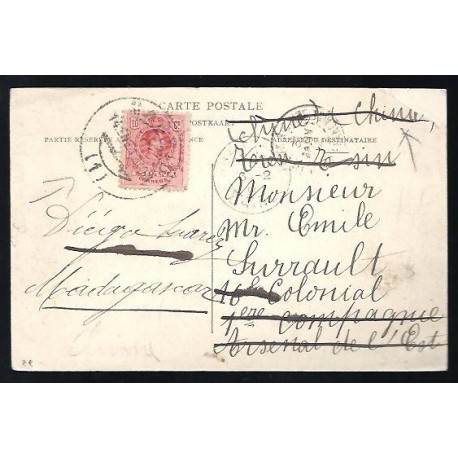 CARTE POSTALE
POSTKAART
PARTIE RÉSERVÉE
ADRESSE DU DESTINATAIRE
(Chine) Chine,
Tien Tsin
Monsieur
Mr. Emile
Surrault
16e Colonial
1ere compagnie
Arsenal de l'Est
Diégo Suarez
Madagascar
(1)